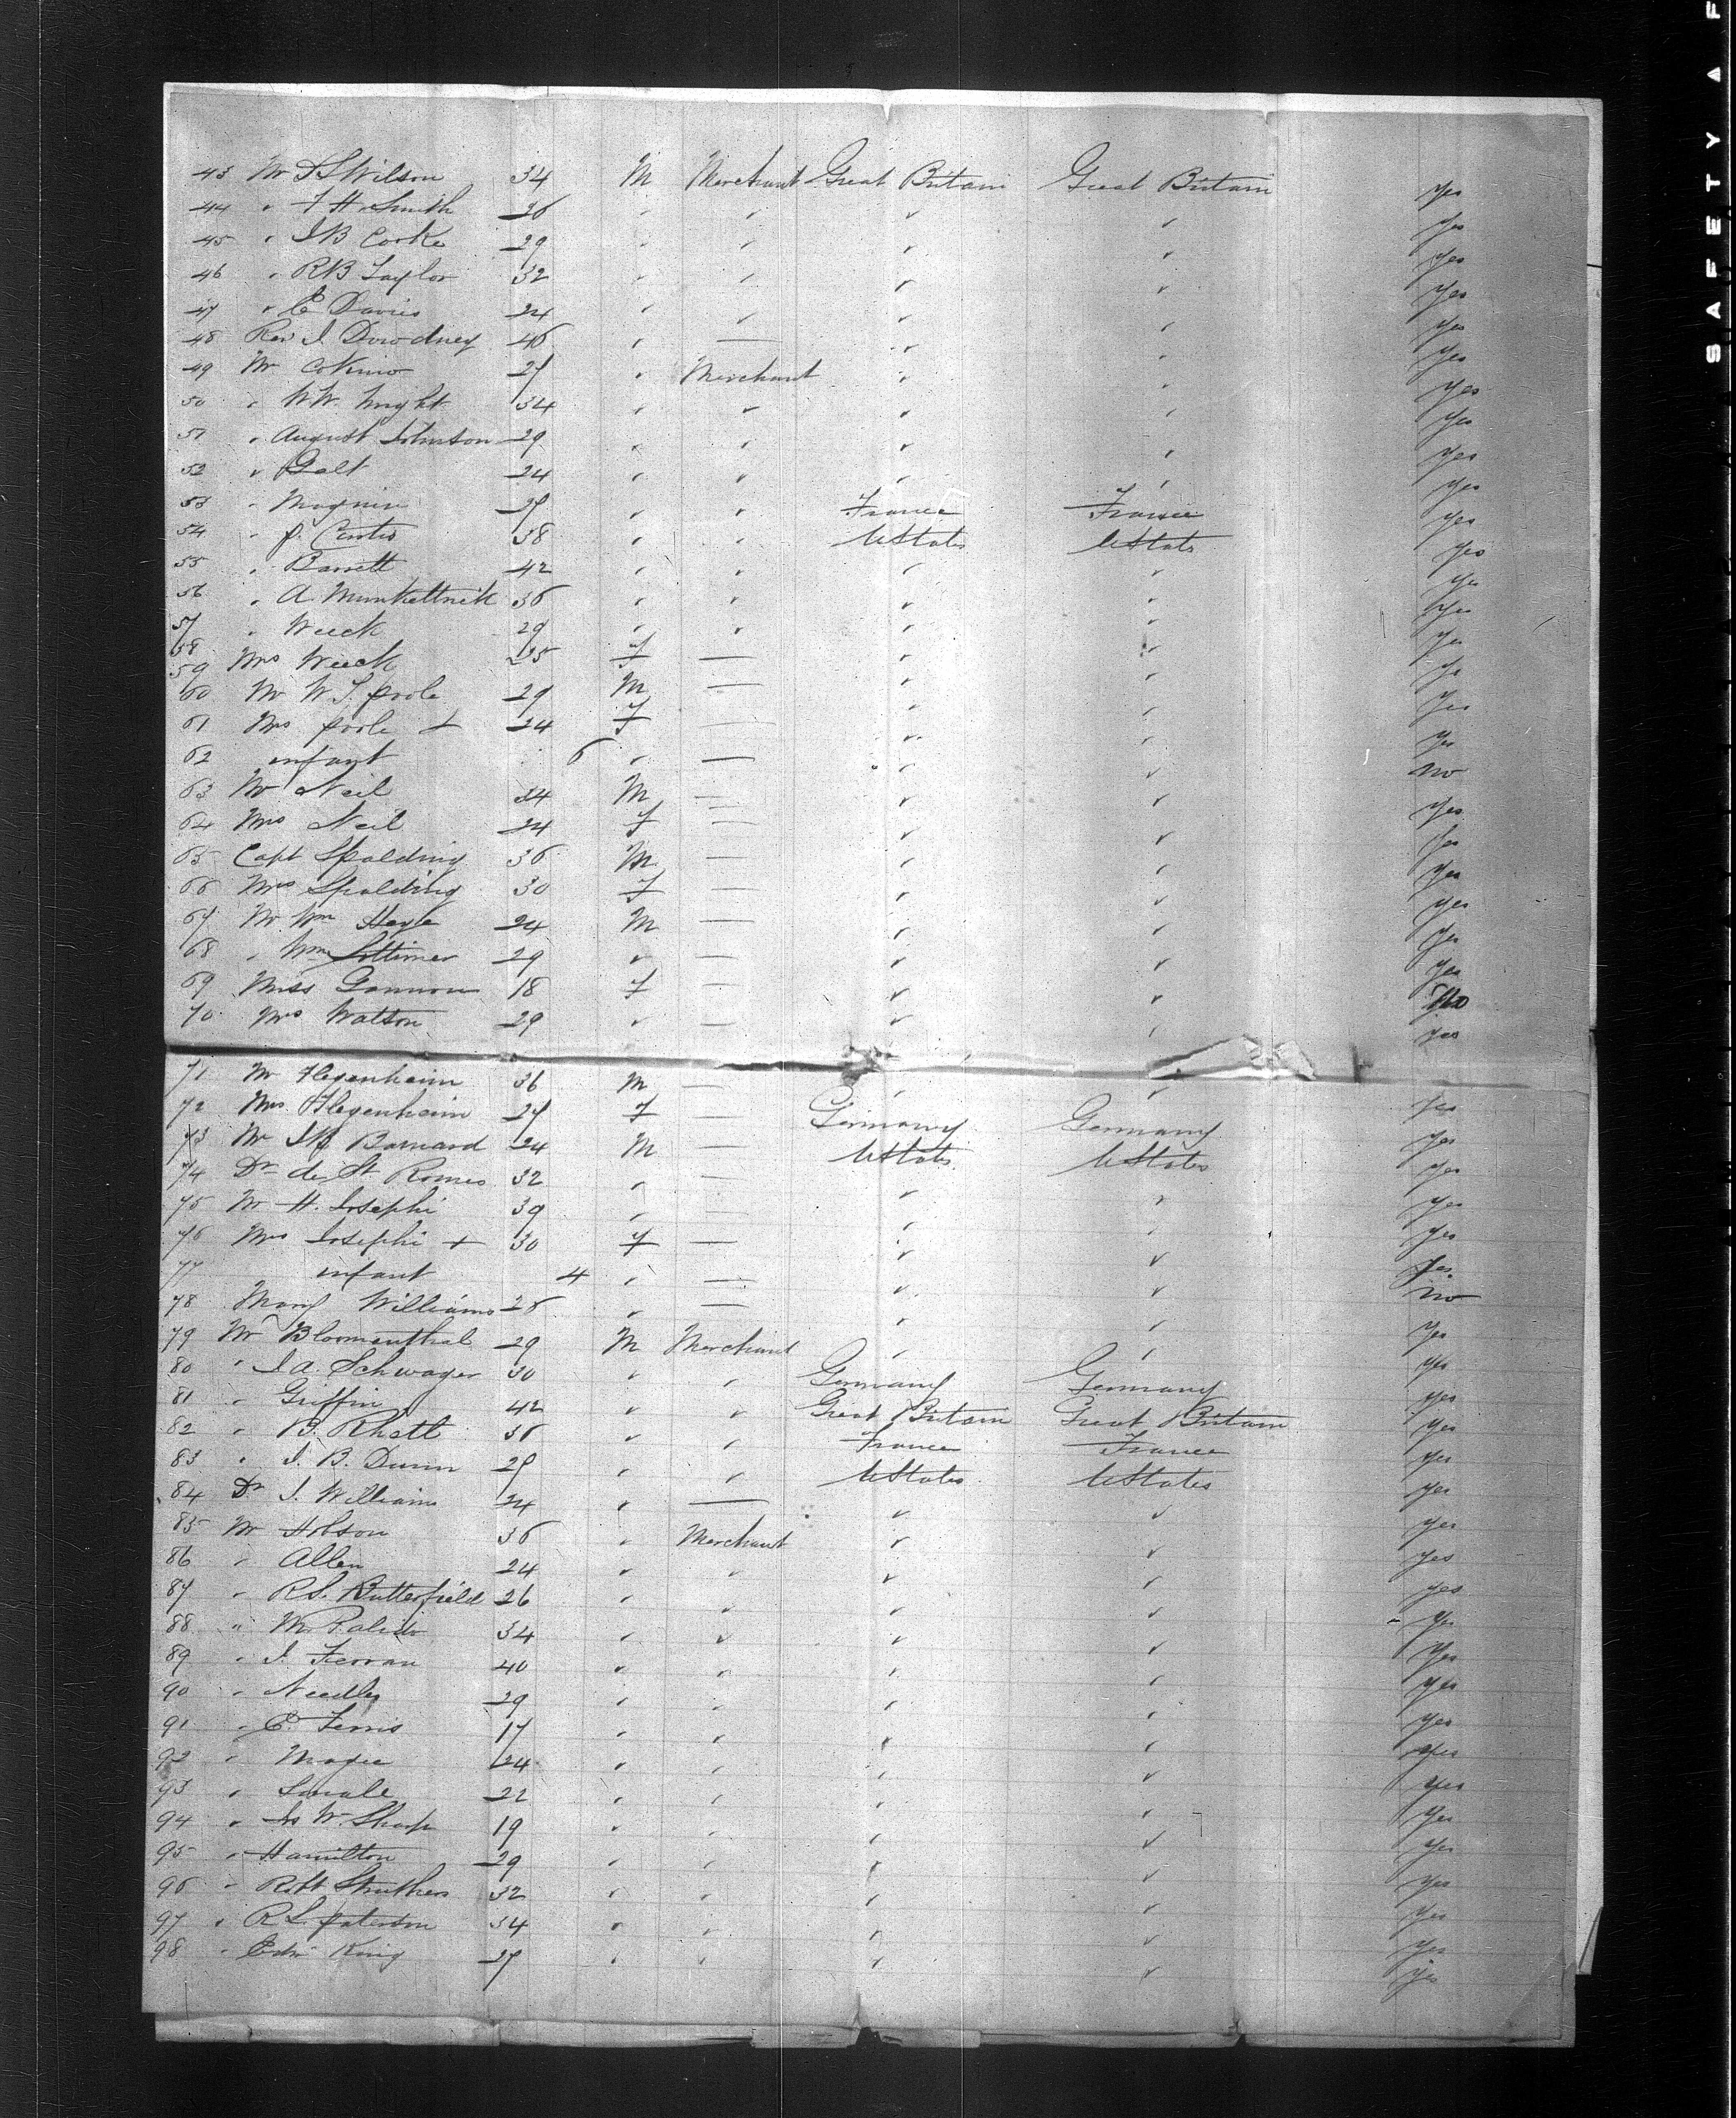 43 Mr D S Wilson 34 M Merchant Great Britain Great Britain Yes
44 " F H Smith 26 " " " " Yes
45 " I B Cooke 29 " " " " Yes
46 " R B Taylor 32 " " " " Yes
47 " E Davies 24 " " " " Yes
48 Rev I Dowdney 46 " — " " Yes
49 Mr Cokino 27 " Merchant " " Yes
50 " W W Wright 34 " " " " Yes
51 " August Johnson 29 " " " " Yes
52 " Galt 24 " " " " Yes
53 " Magnin 27 " " France France Yes
54 " P. Curtis 38 " " U States U States Yes
55 " Barrett 42 " " " " Yes
56 " A Munkettrick 36 " " " " Yes
57 " Weeck 29 " " " " Yes
58
59 Mrs Weeck 25 F — " " Yes
60 Mr W S. Poole 29 M — " " Yes
61 Mrs Poole + 24 F — " " Yes
62 infant 6 " — " " No
63 Mr Neil 34 M — " " Yes
64 Mrs Neil 24 F — " " Yes
65 Capt Spalding 36 M — " " Yes
66 Mrs Spalding 30 F — " " Yes
67 Mr Wm Hoyle 24 M — " " Yes
68 " Wm Lottimer 29 " — " " Yes
69 Miss Gannon 18 F — " " No
70 Mrs Watson 29 " — " " Yes
71 Mr Flegenheim 36 M — " " Yes
72 Mrs. Flegenheim 27 F — Germany Germany Yes
73 Mr I B. Barnard 24 M — U States U States Yes
74 Dr de St Romes 32 " — " " Yes
75 Mr H. Josephi 39 " — " " Yes
76 Mrs Josephi + 30 F — " " Yes
77 infant 4 " — " " No
78 Mary Williams 26 " — " " Yes
79 Mr Bloomenthal 29 M Merchant " " Yes
80 " I A. Schwager 30 " " Germany Germany Yes
81 " Griffin 42 " " Great Britain Great Britain Yes
82 " B. Rhatt 36 " " France France Yes
83 " I. B. Dunn 29 " " U States U States Yes
84 Dr I. Williams 24 " — " " Yes
85 Mr Hobson 36 " Merchant " " Yes
86 " Allen 24 " " " " Yes
87 " R S. Butterfield 26 " " " " Yes
88 " 34 " " " " Yes
89 " I. Ferran 40 " " " " Yes
90 " Needles 29 " " " " Yes
91 " E. Ferris 17 " " " " Yes
92 " Magee 24 " " " " Yes
93 " Smale 22 " " " " Yes
94 " Js W. Sharp 19 " " " " Yes
95 " Hamilton 29 " " " " Yes
96 " Robt Struthers 32 " " " " Yes
97 " R S. Paterson 34 " " " " Yes
98 " Edw King 27 " " " " Yes
SAFETY AF